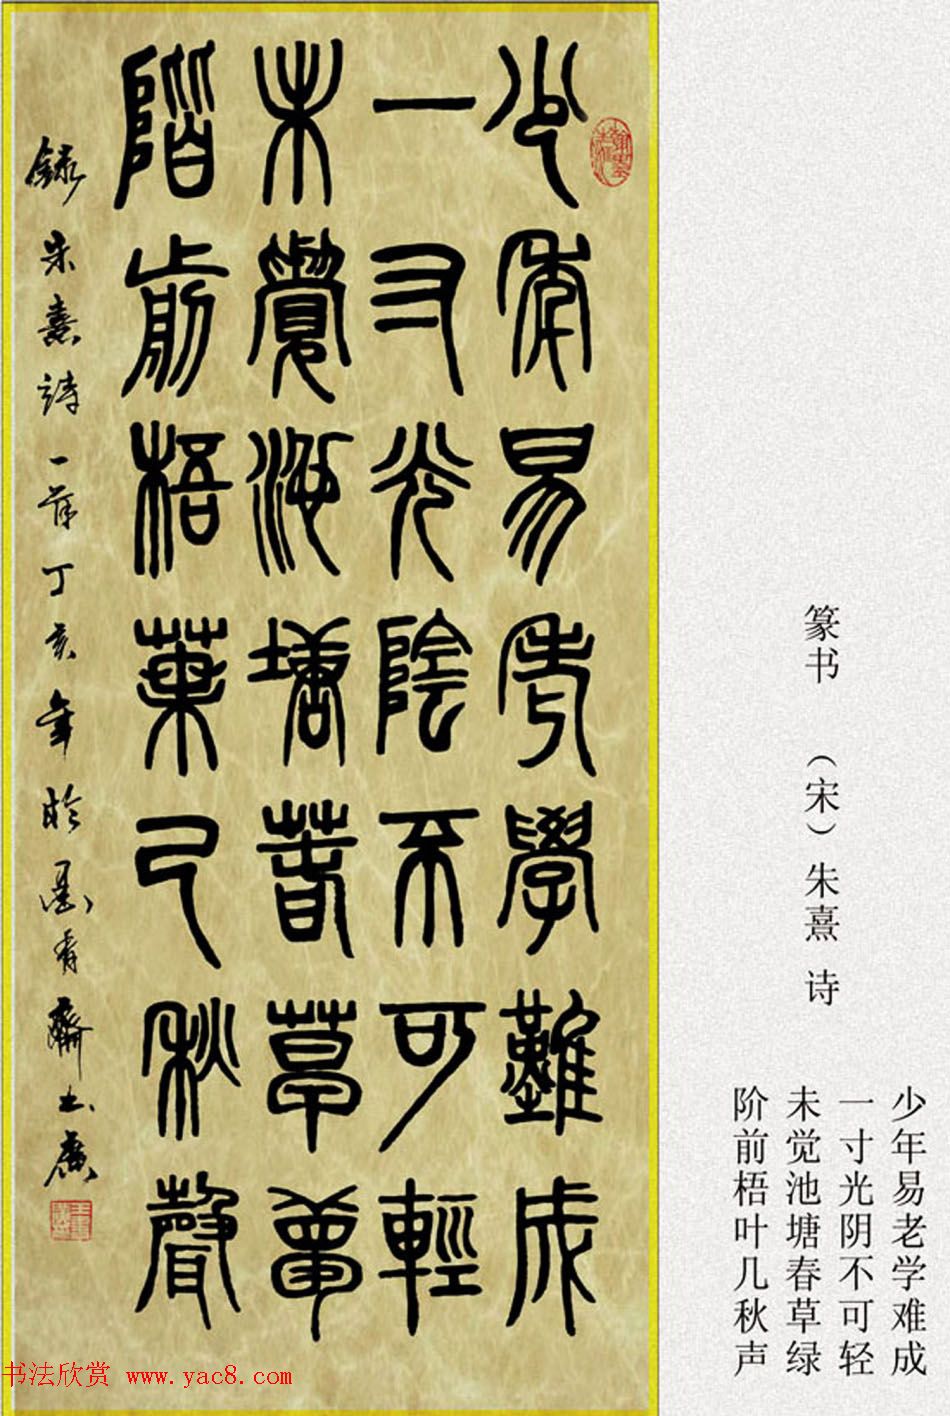 少年易老學難成
一寸光陰不可輕
未覺池塘春草夢
階前梧葉已秋聲
錄朱熹詩一首丁亥年於墨
篆书 （宋）朱熹 诗
少年易老学难成
一寸光阴不可轻
未觉池塘春草绿
阶前梧叶几秋声
书法欣赏 www.yac8.com